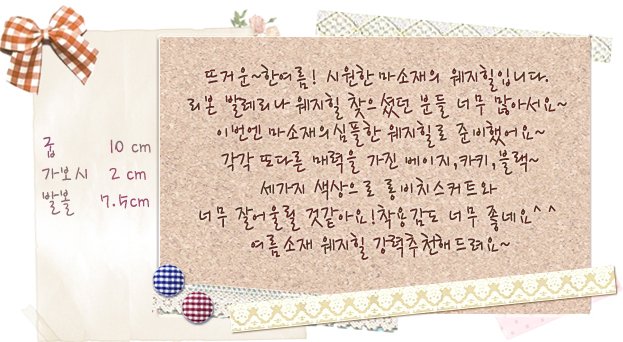 굽 10 cm
가보시 2 cm
발볼 7.5cm
뜨거운~한여름! 시원한 마소재의 웨지힐입니다.
리본 발레리나 웨지힐 찾으셨던 분들 너무 많아서요~
이번엔 마소재의심플한 웨지힐로 준비했어요~
각각 또다른 매력을 가진 베이지,카키,블랙~
세가지 색상으로 롱비치스커트와
너무 잘어울릴 것같아요!착용감도 너무 좋네요^^
여름소재 웨지힐 강력추천해드려요~